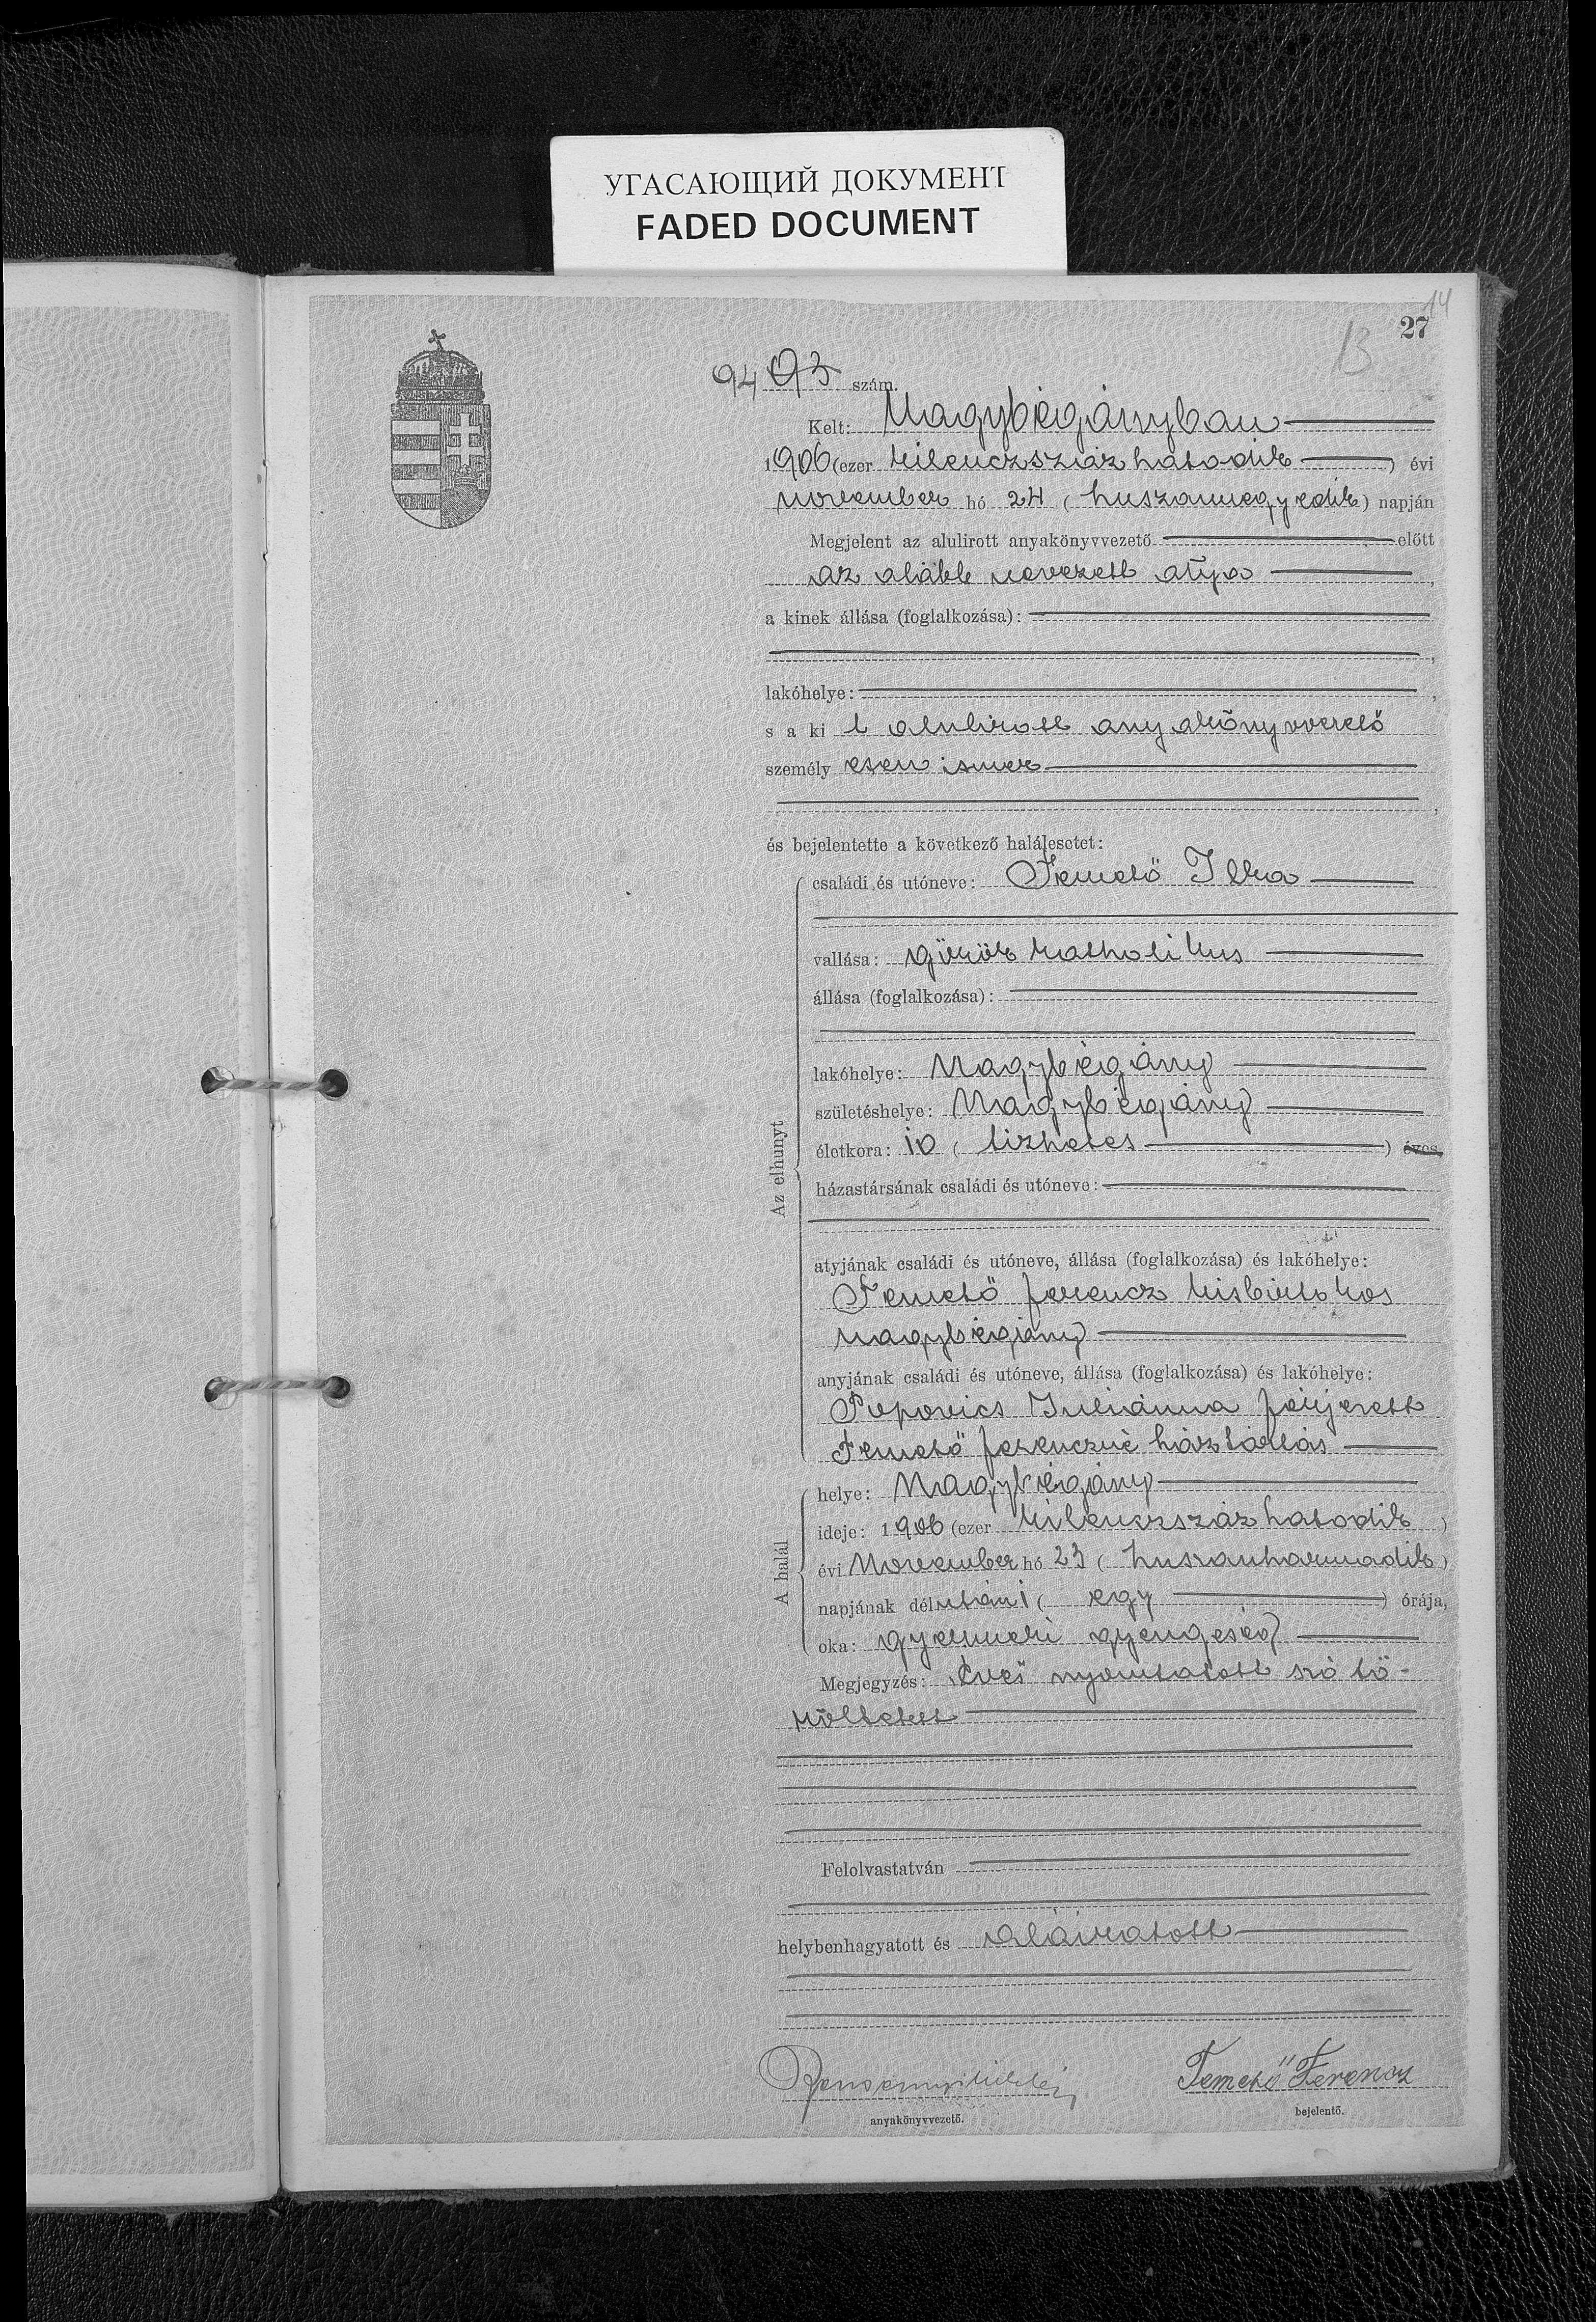 УГАСАЮЩИЙ ДОКУМЕНТ
FADED DOCUMENT
14
27
13
94 93 szám.
Kelt: Nagybégányban
1906 (ezer kilenczszáz hatodik ) évi
november hó 24 ( huszonnegyedik ) napján
Megjelent az alulirott anyakönyvvezető előtt
az alább nevezett atya ,
a kinek állása (foglalkozása):
,
lakóhelye: ,
s a ki t alulirott anyakönyvvezető
személy esen ismer
,
és bejelentette a következő halálesetet:
családi és utóneve: Temető Ilka
vallása: görök katholikus
állása (foglalkozása):
lakóhelye: Nagybégány
születéshelye: Nagybégány
életkora: 10 ( tizhetes ) éves,
házastársának családi és utóneve:
atyjának családi és utóneve, állása (foglalkozása) és lakóhelye:
Temető Ferencz kisbirtokos
nagybégány
anyjának családi és utóneve, állása (foglalkozása) és lakóhelye:
Popovics Juliánna férjezett
Temető Ferenczné háztartás
Az elhunyt
helye: Nagybégány
ideje: 1906 (ezer kilenczszáz hatodik )
évi November hó 23 ( huszonharmadik )
napjának délutáni ( egy ) órája,
oka: gyermeki gyengeség
A halál
Megjegyzés: Éves nyomtatott szó tö-
röltetett
Felolvastatván
helybenhagyatott és aláiratott
Temető Ferencz
anyakönyvvezető.
bejelentő.